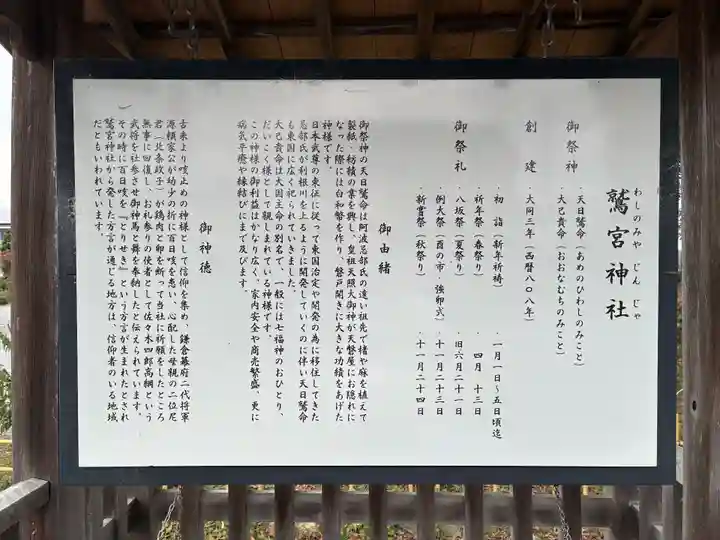 鷲宮神社
わしのみや じんじゃ
御祭神
・天日鷲命(あめのひわしのみこと)
・大己貴命(おおなむちのみこと)
創建
・大同三年(西暦八〇八年)
御祭礼
・初詣(新年祈祷) ・一月一日~五日頃迄
・祈年祭(春祭り) ・四月十三日
・八坂祭(夏祭り) ・旧六月二十一日
・例大祭(酉の市、強卵式) ・十一月二十三日
・新嘗祭(秋祭り) ・十一月二十四日
御由緒
御祭神の天日鷲命は阿波忌部氏の遠い祖先で楮や麻を植えて
製紙・紡績の業を興し、皇祖天照大御神が天磐屋にお隠れに
なった際には白和幣を作り、磐戸開きに大きな功績をあげた
神様です。
日本武尊の東征に従って東国治定や開発の為に移住してきた
忌部氏が利根川を上るように開発していくのに伴い天日鷲命
も東国に広く祀られていきました。
大己貴命は大国主命の別名で、一般には七福神のおひとり、
だいこく様として親しまれている神様です。
この神様の御利益はかなり広く、家内安全や商売繁盛、更に
病気平癒や縁結びにまで及びます。
御神徳
古来より咳止めの神様として信仰を集め、鎌倉幕府二代将軍
源頼家公が幼少の折に百日咳を患い、心配した母親の二位尼
君(北条政子)が鶏肉と卵を断って当社に祈願をしたところ
無事に回復し、お礼参りの使者として佐々木四郎高綱という
武将を社参させ御神馬と舞を奉納したと伝えられています。
その時に百日咳を『とりせき』という方言が生まれたとされ
鷲宮神社から発した方言が通じる地方は、信仰者のいる地域
だともいわれています。